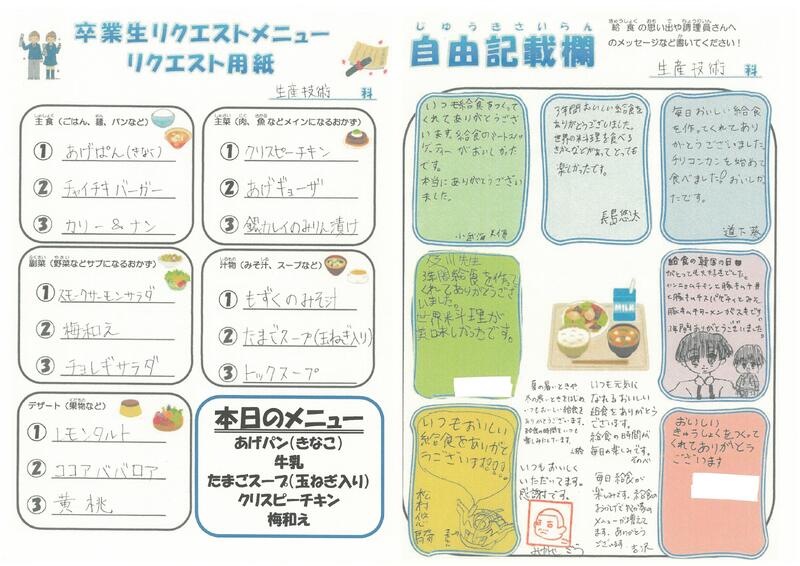 卒業生リクエストメニュー
リクエスト用紙
生産技術 科
主食（ごはん、麺、パンなど）
① あげぱん（きなこ）
② チャイチキバーガー
③ カリー＆ナン
主菜（肉、魚などメインになるおかず）
① クリスピーチキン
② あげギョーザ
③ 銀カレイのみりん漬け
副菜（野菜などサブになるおかず）
① スモークサーモンサラダ
② 梅和え
③ チョレギサラダ
汁物（みそ汁、スープなど）
① もずくのみそ汁
② たまごスープ（玉ねぎ入り）
③ トックスープ
デザート（果物など）
① レモンタルト
② ココアババロア
③ 黄桃
本日のメニュー
あげパン（きなこ）
牛乳
たまごスープ（玉ねぎ入り）
クリスピーチキン
梅和え
じゆうきさいらん
自由記載欄
給食の思い出や調理員さんへ
のメッセージなど書いてください！
生産技術 科
いつも給食をつくって
くれてありがとうござい
ます。給食のミートスパ
ゲティーがおいしかった
です。
本当にありがとうござい
ました。
3年間おいしい給食を
ありがとうございました。
世界の料理を食べる
きかいなどがあって、とっても
楽しかったです。
長島悠太
毎日おいしい給食
を作ってくれてあり
がとうございました。
チリコンカンを始めて
食べました！おいしか
ったです。
道下 葵
及川先生
3年間給食を作って
くれてありがとうござい
ました。
世界料理が
美味しかったです。
給食の
3年間ありがとうございました。
MILK
夏の暑いときや
冬の寒いときをはじめ
いつもおいしい給食を
ありがとうございます。
給食の時間をいつも
楽しみにしています。
いつも元気に
なれるおいしい
給食をありがとう
ございます。
給食の時間が
毎日の楽しみです。
いつもおいしい
給食をありがと
うございます!!!!
松村悠
いつもおいしく
いただいてます。
感謝です。
毎日給食が
楽しみです。給食の
おかげで我が家の
メニューが増えて
ます。ありがとう
ございます。 吉沢
おいしい
きゅうしょくをつくって
くれてありがとう
ございます